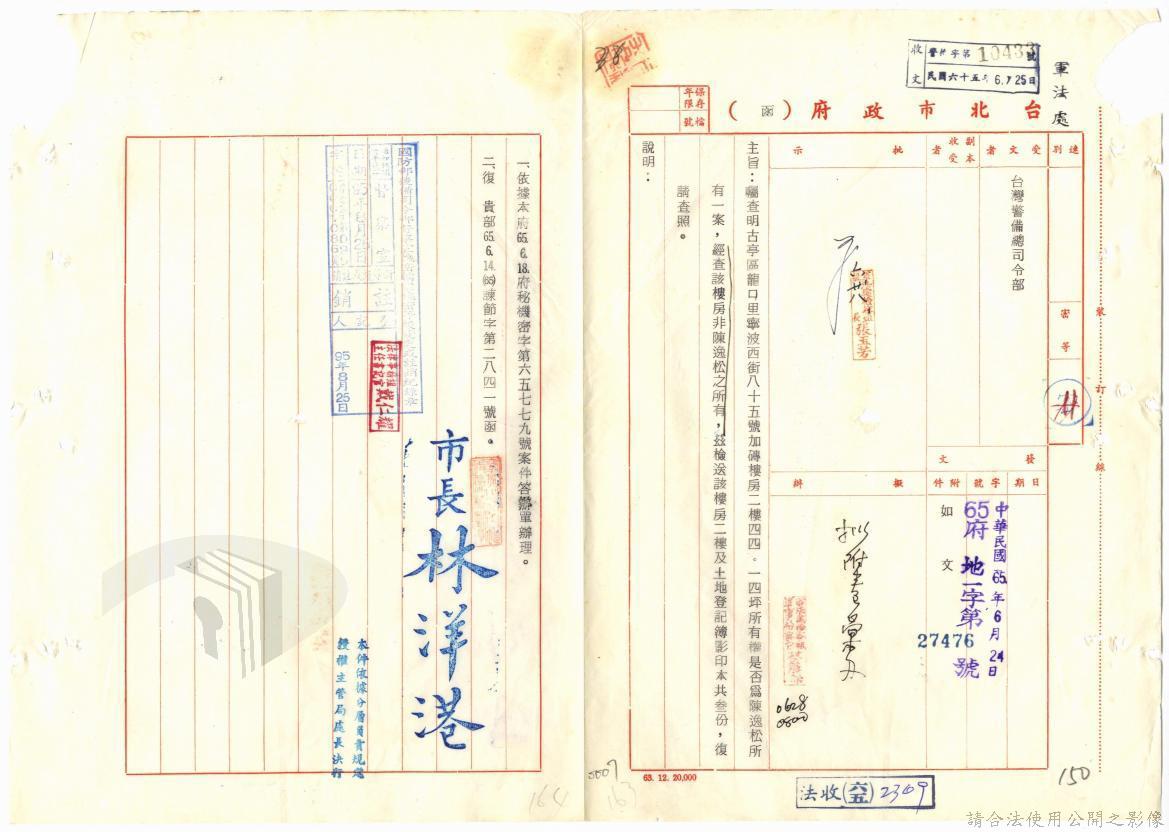 軍法處
收文
警 字第10433號
民國六十五年6月25日
台北市政府(函)
保存年限
檔號
速別
密等
受文者
台灣警備總司令部
副本收受者
批示
六 廿八
張玉芳
發文
日期
字號
附件
中華民國65年6月24日
65府地一字第27476號
如文
擬辦
0628
0800
裝訂線
主旨：囑查明古亭區龍口里寧波西街八十五號加磚樓房二樓四四．一四坪所有權是否爲陳逸松所
有一案，經查該樓房非陳逸松之所有，茲檢送該樓房二樓及土地登記簿影印本共叁份，復
請查照。
說明：
63. 12. 20,000
法收(六五)2309
150
0007
163
一、依據本府65.6.18.府秘機密字第六五七七九號案件答辦單辦理。
二、復　貴部65.6.14.(65)諫節字第二八四一號函。
市長林洋港
註銷
登記人
95年8月25日
戴仁耀
本件依據分層負責規定
授權主管局處長決行
164
請合法使用公開之影像